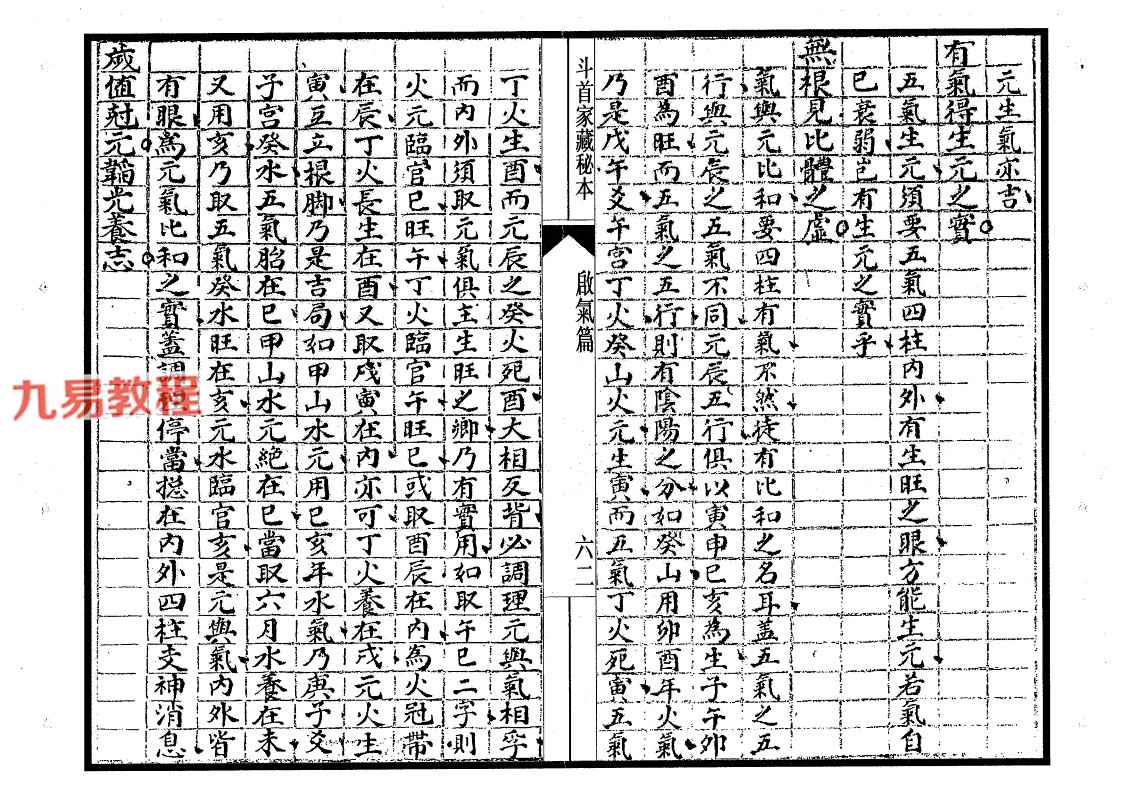 元生氣亦吉
有氣得生元之實
五氣生元須要五氣四柱內外有生旺之眼方能生元若氣自
已衰弱豈有生元之實乎
無根見比體之虛
氣與元比和要四柱有氣不然徒有比和之名耳盖五氣之五
行與元辰之五氣不同元辰五行俱以寅申巳亥為生子午卯
酉為旺而五氣之五行則有陰陽之分如癸山用卯酉年火氣
乃是戊午爻午宮丁火癸山火元生寅而五氣丁火死寅五氣
斗首家藏秘本
啟氣篇
六二
丁火生酉而元辰之癸火死酉大相反背必調理元與氣相孚
而內外須取元氣俱主生旺之鄉乃有實用如取午巳二字則
火元臨官巳旺午丁火臨官午旺巳或取酉辰在內為火冠帶
在辰丁火長生在酉又取戌寅在內亦可丁火養在戌元火生
寅豆立根脚乃是吉局如甲山水元用巳亥年水氣乃庚子爻
子宮癸水五氣胎在巳甲山水元絕在巳當取六月水養在未
又用亥乃取五氣癸水旺在亥元水臨官亥是元與氣內外皆
有眼爲元氣比和之實蓋調和停當摠在內外四柱支神消息
歲值尅元韜光養志
九易教程